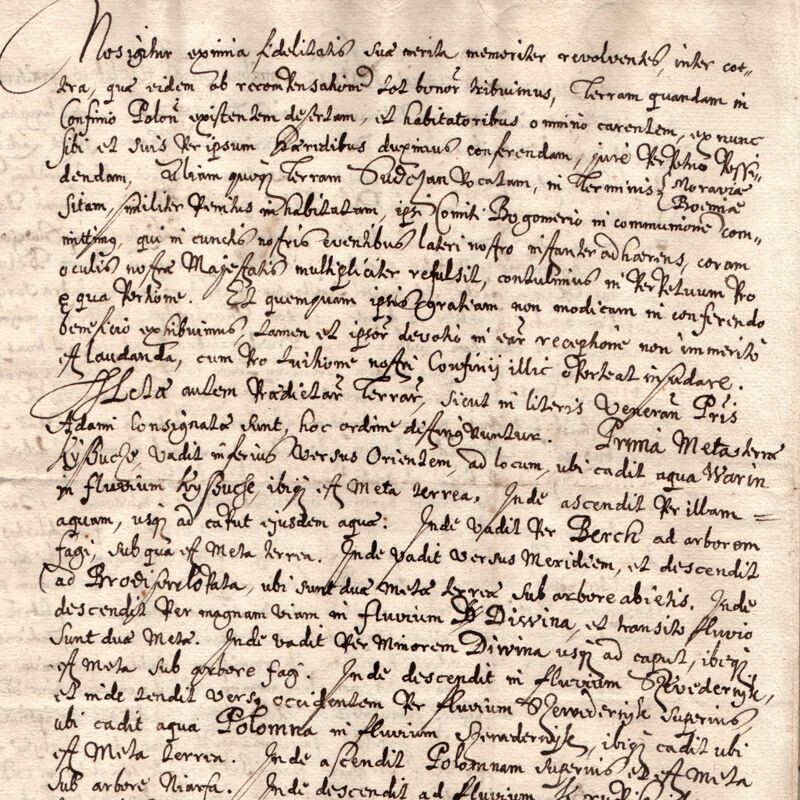 Nos igitur eximia fidelitatis suæ merita memoriter revolventes, inter cœ-
tera, quæ eidem ob recompensationē tot bonor̄ tribuimus, Terram quandam in
Confinio Polon̄ existentem desertam, et habitatoribus omnino carentem, ex nunc
sibi et suis per ipsum Hæredibus duximus conferendam, jure perpetuo possi-
dendam, Aliam quoq; Terram Sudejan vocatam, in Terminis Moraviæ Boemiæ
sitam, similiter penitus inhabitatam, ipsi Comiti Bogomerio in communionē com-
mittimus, qui in cunctis nostris eventibus lateri nostro instanter adhærens, coram
oculis nostræ Majestatis multipliciter refulsit, contulimus in perpetuum pro
æqua portione. Et quemquam ipsis gratiam non modicam in conferendo
beneficio exhibuimus, tamen et ipsor̄ devotio in ear̄ receptione non immerito
est laudanda, cum pro tuitione nostri Confinij illic oporteat insudare.
Metæ autem prædictar̄ Terrar̄, sicut in literis Veneran̄ Pr̄is
Adami Consignatæ sunt, hoc ordine distinguuntur. Prima Meta terræ
Kyssucze, vadit inferius versus Orientem, ad locum, ubi cadit aqua Warin
in fluvium Kyssucze, ibiq; est Meta terrea. Inde ascendit per illam
aquam, usq; ad caput ejusdem aquæ. Inde vadit per Berch ad arborem
fagi, sub qua est Meta terrea. Inde vadit versus Meridiem, et descendit
ad, ubi sunt duæ Metæ terreæ sub arbore abietis. Inde
descendit per magnam viam in fluvium Diwina, et transito fluvio
sunt duæ Metæ. Inde vadit per Minorem Diwina usq; ad caput, ibiq;
est Meta sub arbore fagi. Inde descendit in fluvium
et inde tendit versus occidentem per fluvium superius,
ubi cadit aqua Polomna in fluvium, ibiq; cadit ubi
est Meta terrea. Inde ascendit Polomnam superius et est Meta
sub arbore. Inde descendit ad fluvium